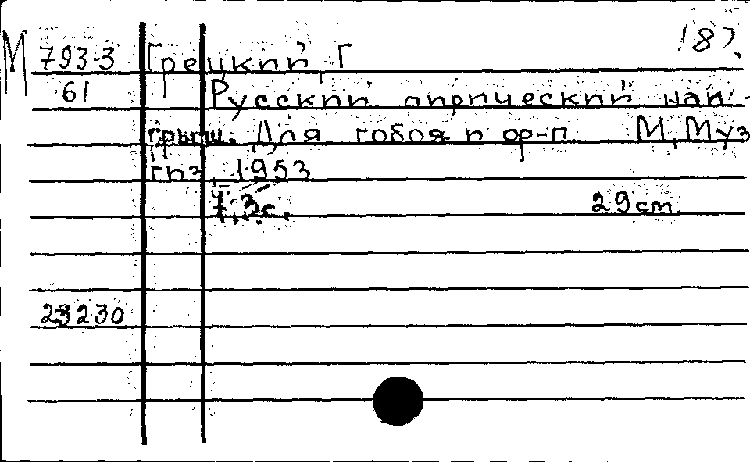 М 793-3 Грецкий, Г 187.
61 Русский лирический наи-
грыш. Для гобоя и ор-п М, Муз
гиз, 1953
7,3 с. 29 cm.
23230